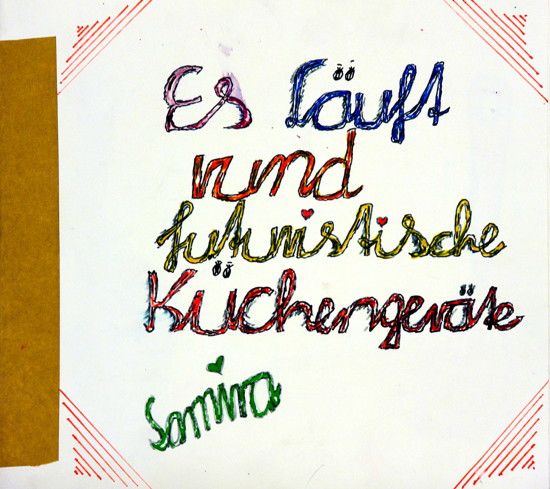 Es läuft
rund
futuristische
Küchengeräte
Samira